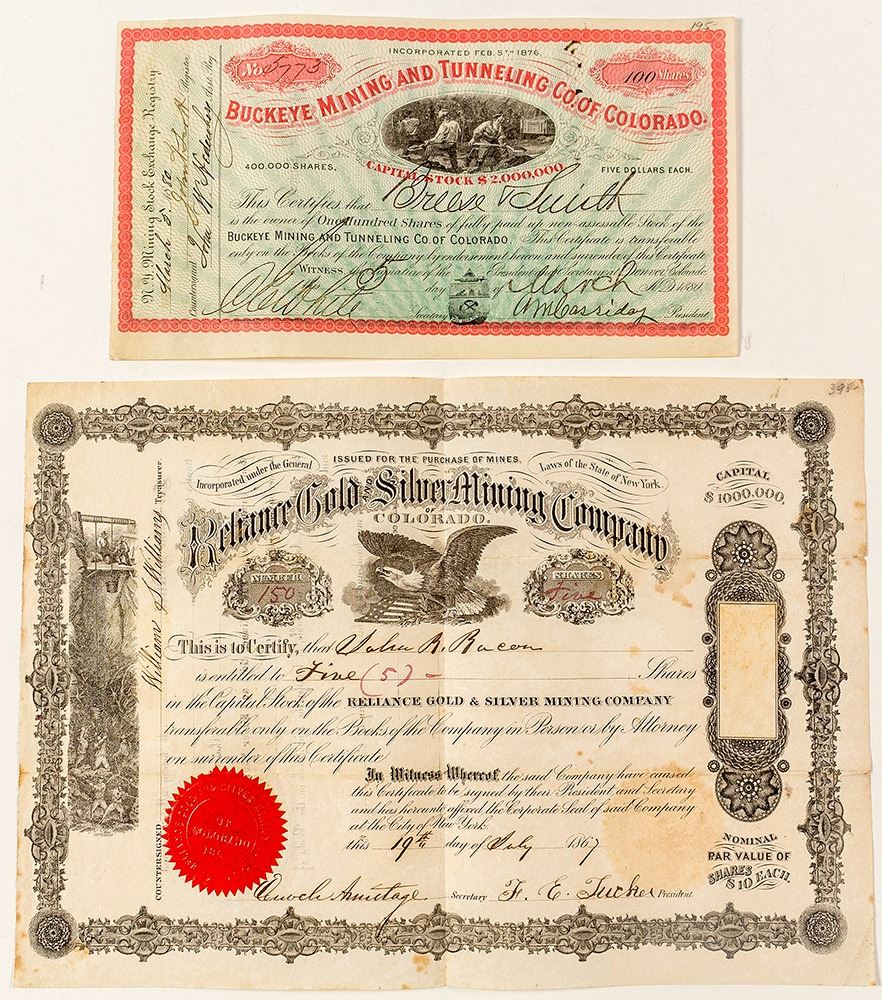 195-
INCORPORATED FEB. 5TH 1876.
No. 5773
100 Shares
BUCKEYE MINING AND TUNNELING CO. OF COLORADO.
400.000 SHARES,
CAPITAL STOCK $2,000,000
FIVE DOLLARS EACH.
This Certifies that Breese & Smith
is the owner of One Hundred Shares of fully paid up non-assessable Stock of the
BUCKEYE MINING AND TUNNELING CO. OF COLORADO This Certificate is transferable
only on the Books of the Company by endorsement hereon and surrender of this Certificate
WITNESS, the Signatures of the President and Secretary at Denver, Colorado
this day of March A.D. 1880.
C. White Secretary Wm Cassiday President
N.Y. Mining Stock Exchange Registry
March 5 1880 Registrar
Countersigned
395-
ISSUED FOR THE PURCHASE OF MINES.
Incorporated under the General
Laws of the State of New York.
Reliance Gold and Silver Mining Company
OF
COLORADO.
CAPITAL
$1000,000,
NUMBER
150
SHARES
Five
This is to Certify, that John R. Bacon
is entitled to Five (5) - Shares
in the Capital Stock of the RELIANCE GOLD & SILVER MINING COMPANY
transferable only on the Books of the Company in Person or by Attorney
on surrender of this Certificate
In Witness Whereof, the said Company have caused
this Certificate to be signed by their President and Secretary
and has hereunto affixed the Corporate Seal of said Company
at the City of New York.
this 19th day of July 1867
Enoch Armitage Secretary F. E. Tucker President.
COUNTERSIGNED
William S. Williams Treasurer.
OF
COLORADO
NOMINAL
PAR VALUE OF
SHARES
$10 EACH.